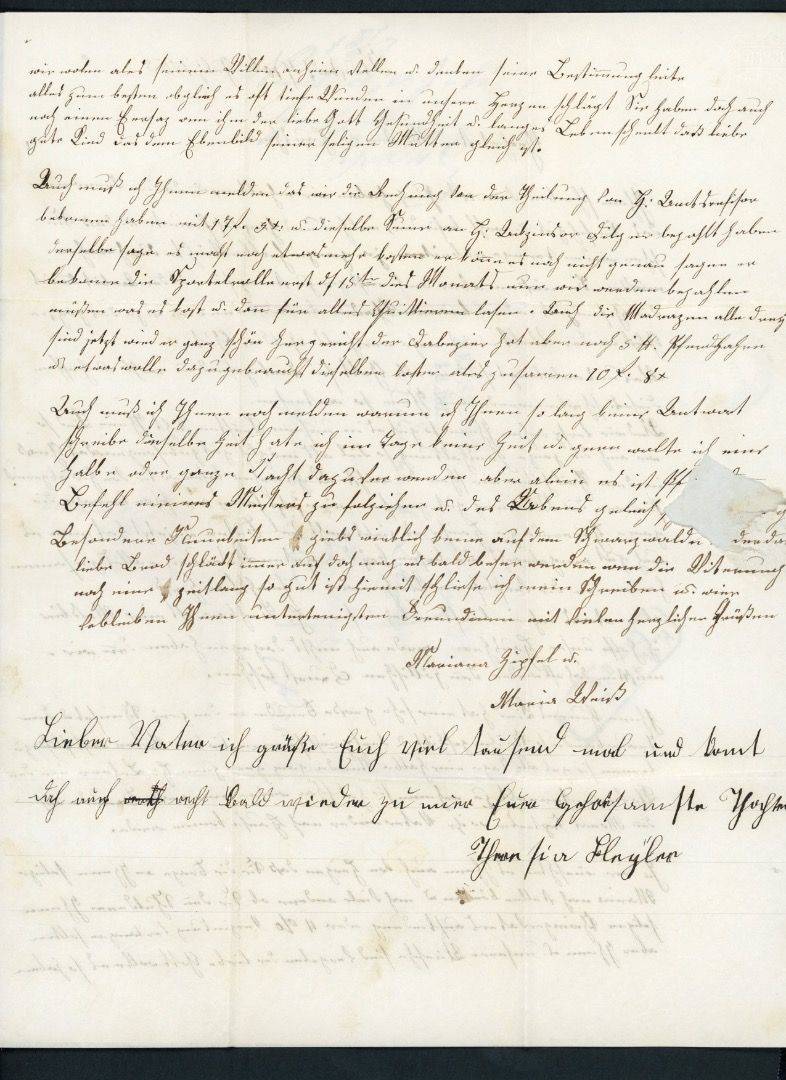 wir wolen ales seinem Willen anheim stellen u. denken seine Bestimmung leite
alles zum besten obgleich es oft tiefe Wunden in unsere Herzen schlägt Sie haben doch auch
noch einen Ersaz von ihm der liebe Gott Gesundheit u. langes Leben schenkt daß liebe
gute Kind das dem Ebenbild seiner seligen Mutter gleich ist.
Auch muß ich Ihnen melden das wir die Rechnung von der Theilung von H: Amtsrefisor
bekomen haben mit 17 f. 5 x: u. dieselbe Sume an H: bezahlt haben
derselbe sagte es macht noch etwas mehr kosten er könne es noch nicht genau sagen er
bekome die Sportelrolle erst d 15ten dies Monats nun wir werden bezahlen
müßen was es kost u. dan für alles Quittieren lasen. Auch die Madrazen alle drey
sind jetzt wieder ganz schön hergericht der hat aber noch 5 ℔. Pferdhahre
u. etwas wolle dazu gebraucht dieselben kosten ales zusamen 10 f. 8 x
Auch muß ich Ihnen noch melden warum ich Ihnen so lang keine Antwort
schreibe dieselbe Zeit hate ich im Tage keine Zeit u. gern wolte ich eine
halbe oder ganze Nacht dazu verwenden aber alein es ist
Befehl meines Meisters zu folziehen u. des Abends gleich
Besondere Neuheiten giebs wirklich keine auf dem Schwarzwald
liebe Brod schlädt immer auf doch mag es bald beser werden wen die Witerung
noch eine zeitlang so gut ist hiemit schliese ich mein Schreiben u. wier
febleiben Ihnen untertenigsten Freundinen mit fielen herzlichen Grüßen
Mariana Zipfel u.
Maria Weiß
Lieber Vater ich grüße Euch viel tausend mal und komt
doch auch recht bald wieder zu mier Euer gehorsamste Thochter
Theresia Kleyler